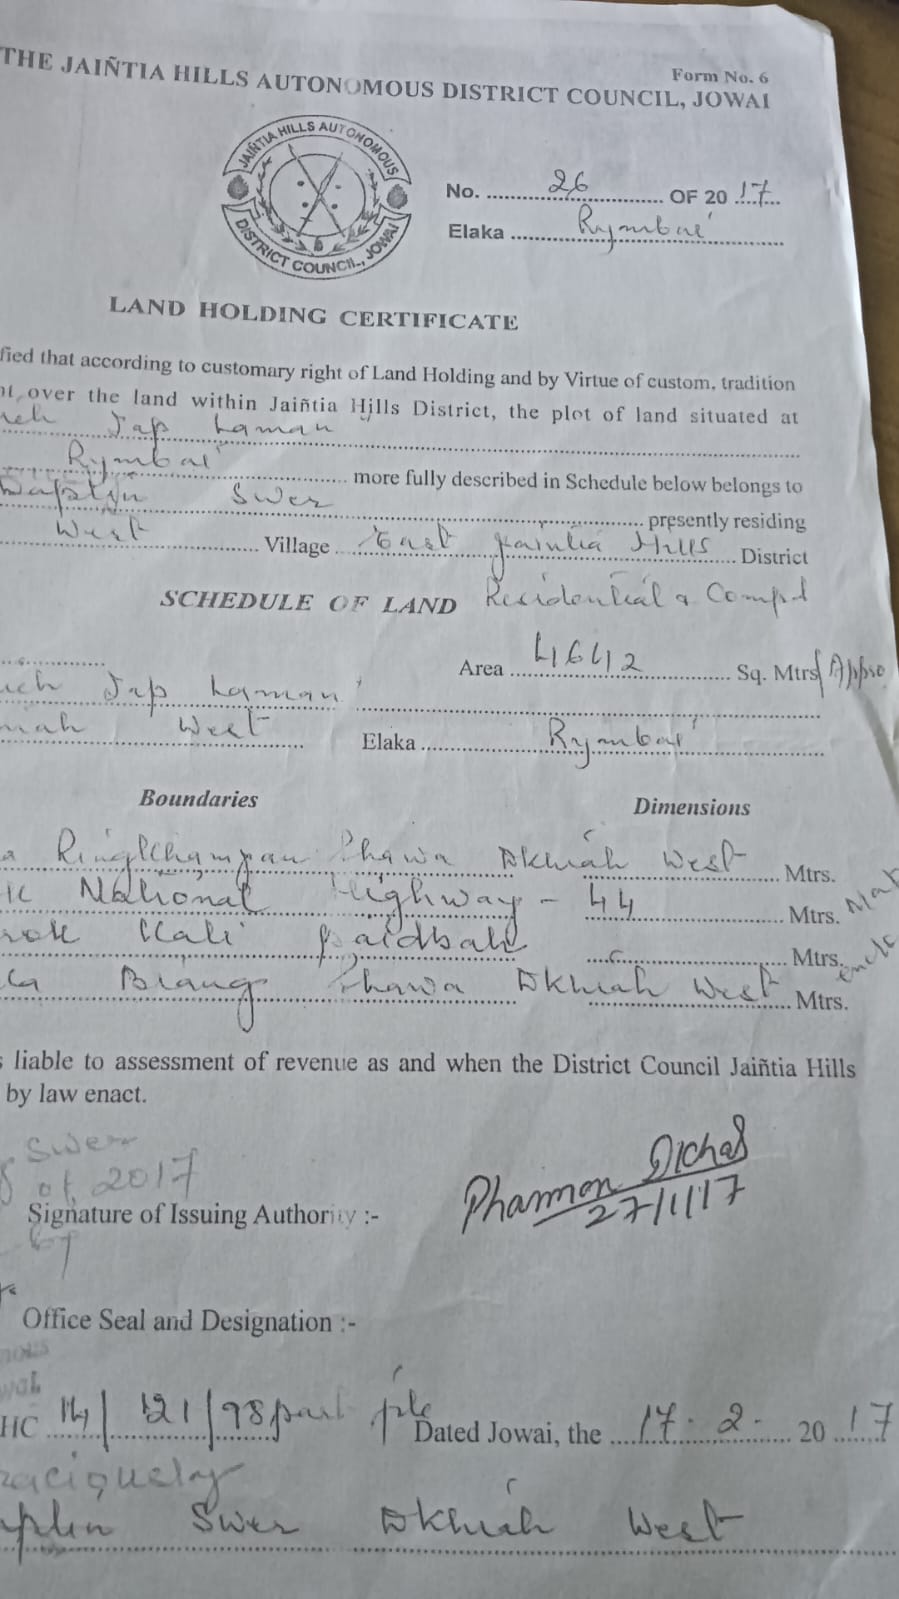 Form No. 6
THE JAIÑTIA HILLS AUTONOMOUS DISTRICT COUNCIL, JOWAI
JAIÑTIA HILLS AUTONOMOUS
DISTRICT COUNCIL, JOWAI
No. 26 OF 2017
Elaka Rymbai
LAND HOLDING CERTIFICATE
fied that according to customary right of Land Holding and by Virtue of custom, tradition
over the land within Jaiñtia Hills District, the plot of land situated at
Jap Laman
Rymbai more fully described in Schedule below belongs to
Swer presently residing
West Village East Jaintia Hills District
SCHEDULE OF LAND Residential & Compd
Area 4642 Sq. Mtrs (Appro
Jap Laman
West Elaka Rymbai
Boundaries Dimensions
Dkhiah West Mtrs.
National Highway - 44 Mtrs.
Mtrs.
Biang Dkhiah West Mtrs.
liable to assessment of revenue as and when the District Council Jaiñtia Hills
by law enact.
Swer
of 2017
Signature of Issuing Authority :-
27/1/17
Office Seal and Designation :-
HC 14/121/98 part file Dated Jowai, the 17. 2. 2017
Swer Dkhiah West